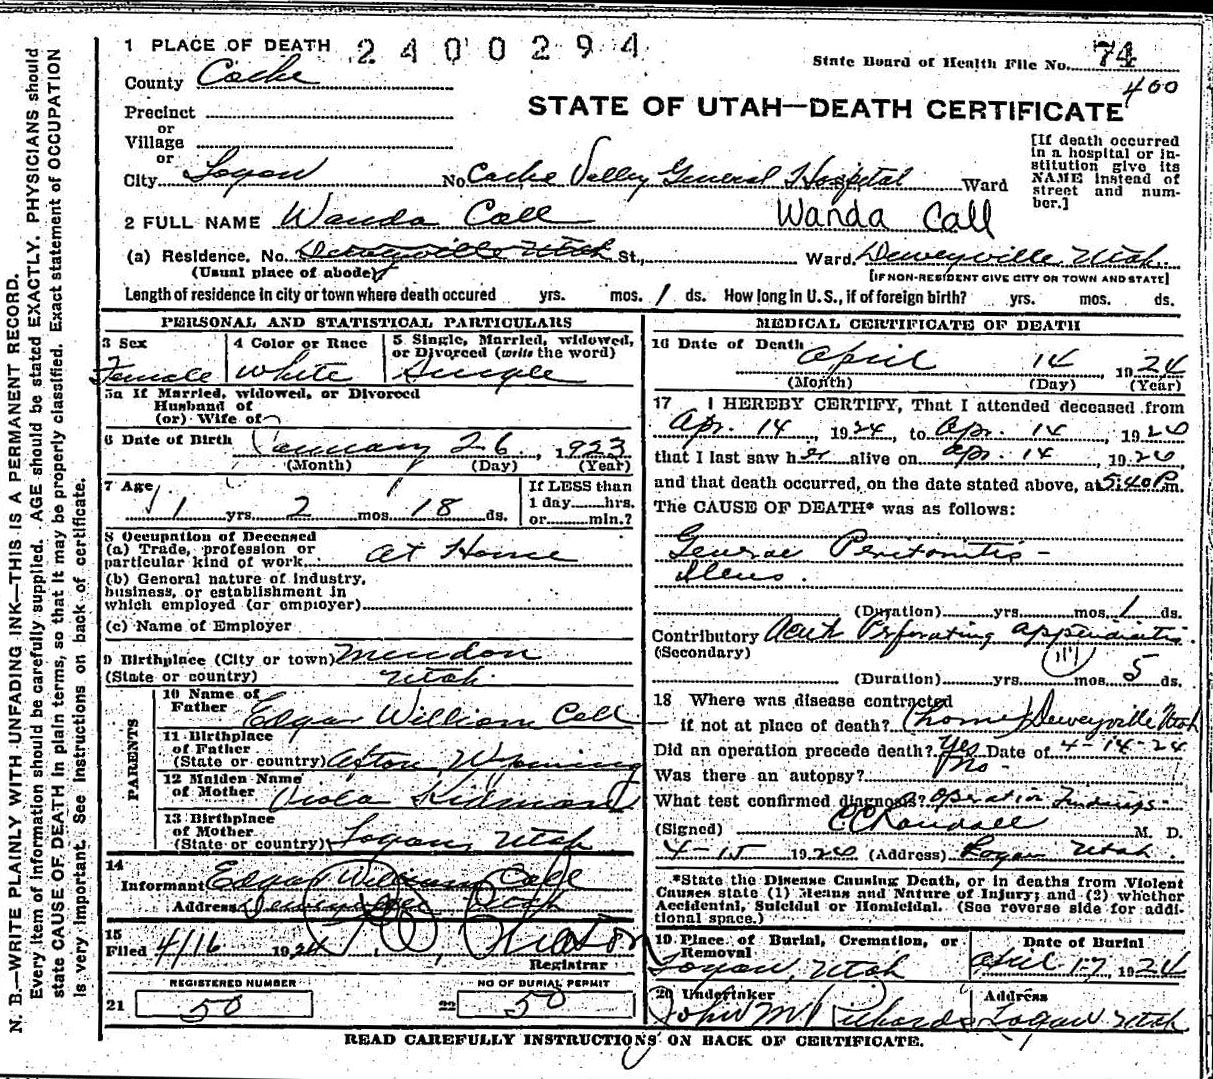 N. B.—WRITE PLAINLY WITH UNFADING INK—THIS IS A PERMANENT RECORD.
Every item of information should be carefully supplied. AGE should be stated EXACTLY. PHYSICIANS should
state CAUSE OF DEATH in plain terms, so that it may be properly classified. Exact statement of OCCUPATION
is very important. See instructions on back of certificate.
1 PLACE OF DEATH 2400294
State Board of Health File No. 74
400
County Cache
STATE OF UTAH—DEATH CERTIFICATE
Precinct
or
Village
or
City Logan No. Cache Valley General Hospital Ward
[If death occurred
in a hospital or in-
stitution give its
NAME instead of
street and num-
ber.]
2 FULL NAME Wanda Call Wanda Call
(a) Residence. No. Deweyville Utah St., Ward. Deweyville Utah.
(Usual place of abode) [IF NON-RESIDENT GIVE CITY OR TOWN AND STATE]
Length of residence in city or town where death occured yrs. mos. 1 ds. How long in U.S., if of foreign birth? yrs. mos. ds.
PERSONAL AND STATISTICAL PARTICULARS
3 Sex
Female
4 Color or Race
White
5 Single, Married, widowed,
or Divorced (write the word)
Single
5a If Married, widowed, or Divorced
Husband of
(or) Wife of
6 Date of Birth January 26, 1923
(Month) (Day) (Year)
7 Age
1 yrs. 2 mos. 18 ds.
If LESS than
1 day hrs.
or min.?
8 Occupation of Deceased
(a) Trade, profession or
particular kind of work At Home
(b) General nature of industry,
business, or establishment in
which employed (or employer)
(c) Name of Employer
9 Birthplace (City or town) Mendon
(State or country) Utah.
PARENTS
10 Name of
Father Edgar William Call
11 Birthplace
of Father
(State or country) Afton, Wyoming
12 Maiden Name
of Mother Viola Kidman
13 Birthplace
of Mother
(State or country) Logan, Utah
14
Informant Edgar William Call
Address Deweyville Utah
15
Filed 4/16 1924
Registrar
REGISTERED NUMBER
21 50
NO OF BURIAL PERMIT
22 50
MEDICAL CERTIFICATE OF DEATH
16 Date of Death
April 14 1924
(Month) (Day) (Year)
17 I HEREBY CERTIFY, That I attended deceased from
Apr. 14, 1924, to Apr. 14, 1924
that I last saw her alive on Apr. 14, 1924,
and that death occurred, on the date stated above, at 5:40 P.m.
The CAUSE OF DEATH* was as follows:
General Peritonitis -
Ileus.
(Duration) yrs. mos. 1 ds.
Contributory Acute Perforating appendicitis.
(Secondary)
(Duration) yrs. mos. 5 ds.
18 Where was disease contracted
if not at place of death? (home) Deweyville Utah
Did an operation precede death? Yes Date of 4-14-24
Was there an autopsy? No-
What test confirmed diagnosis? Operation Findings-
(Signed) C C Randall M. D.
4-15 1924 (Address) Logan Utah.
*State the Disease Causing Death, or in deaths from Violent
Causes state (1) Means and Nature of Injury; and (2) whether
Accidental, Suicidal or Homicidal. (See reverse side for addi-
tional space.)
19 Place of Burial, Cremation, or
Removal
Logan, Utah
Date of Burial
April 17, 1924
20 Undertaker
John M. Richards
Address
Logan Utah
READ CAREFULLY INSTRUCTIONS ON BACK OF CERTIFICATE.